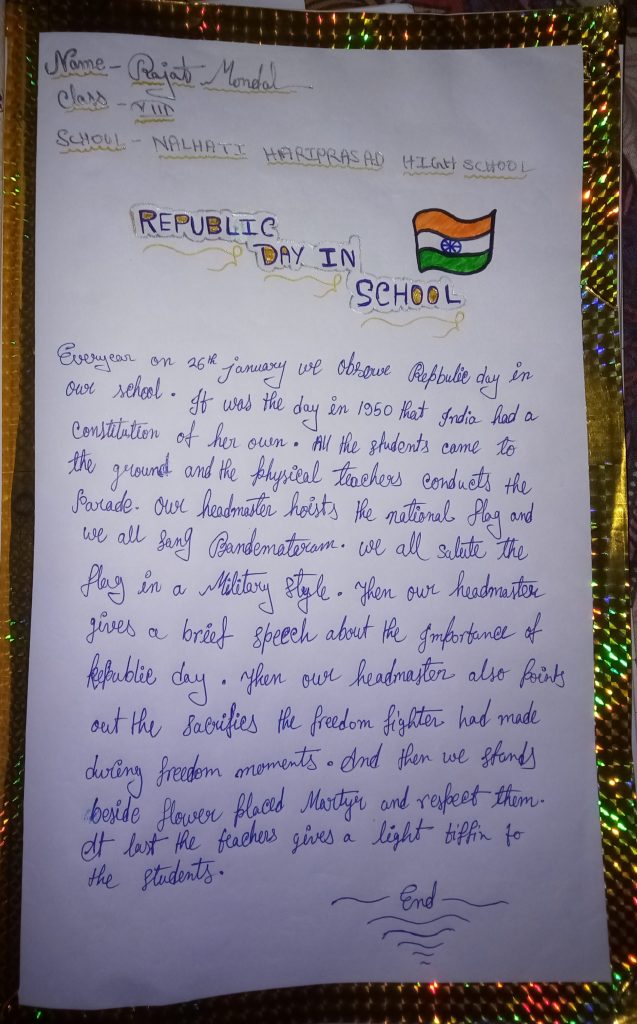 Name - Rajat Mondal
Class - VIII
SCHOOL - NALHATI HARIPRASAD HIGH SCHOOL
REPUBLIC
DAY IN
SCHOOL
Everyear on 26th january we observe Repbulic day in
our school. It was the day in 1950 that India had a
Constitution of her own. All the students come to
the ground and the physical teachers conducts the
Parade. Our headmaster hoists the national flag and
we all sang Bandemataram. we all salute the
flag in a Military style. Then our headmaster
gives a brief speech about the Importance of
Republic day. Then our headmaster also points
out the sacrifies the freedom fighter had made
during freedom moments. And then we stands
beside flower placed Martyr and respect them.
At last the teachers gives a light tiffin to
the students.
End